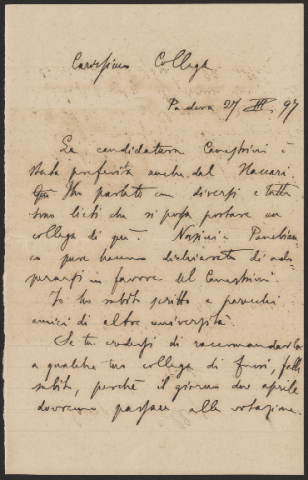 Carissimo Collega
Padova 27 III, 97
La candidatura Canestrini è
stata preferita anche dal Naccari.
Qui ho parlato con diversi e tutti
sono lieti che si possa portare un
collega di qui. Nasini e Panebian-
co pure hanno dichiarato di ado-
perarsi in favore del Canestrini.
Io ho subito scritto a parecchi
amici di altre università.
Se tu credessi di raccomandarlo
a qualche tuo collega di fuori, fallo
subito, perchè il giorno due aprile
dovremo passare alla votazione.